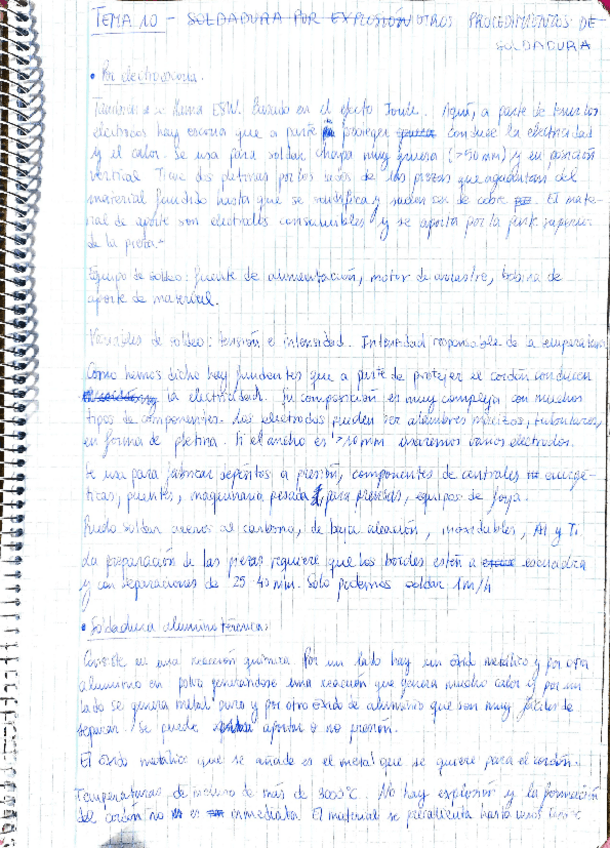 TEMA 10 - SOLDADURA POR EXPLOSIÓN OTROS PROCEDIMIENTOS DE
SOLDADURA
• Por electroescoria.
También se llama ESW. Basado en el efecto Joule. Aquí, a parte de tener los
eléctricos hay escoria que a parte proteger conduce la electricidad
y el calor. Se usa para soldar chapa muy gruesa (>50 mm) y en posición
vertical. Tiene dos pletinas por los lados de las piezas que aguantan el
material fundido hasta que se solidifica y suelen ser de cobre. El mate-
rial de aporte son electrodos consumibles y se aporta por la parte superior
de la pieza.
Equipo de soldeo: fuente de alimentación, motor de arrastre, bobina de
aporte de material.
Variables de soldeo: tensión e intensidad. Intensidad responsable de la temperatura
Como hemos dicho hay fundentes que a parte de proteger el cordón conducen
la electricidad. Su composición es muy compleja con muchos
tipos de componentes. Los electrodos pueden ser alambres macizos, tubulares,
en forma de pletina. Si el ancho es >50mm usaremos varios electrodos.
Se usa para fabricar depósitos a presión, componentes de centrales energé-
ticas, puentes, maquinaria pesada para presas, equipos de
Puedo soldar aceros al carbono, de baja aleación, inoxidables, Al y Ti
La preparación de las piezas requiere que los bordes estén a escuadra
y con separaciones de 25-40 mm. Solo podemos soldar 1m/h
• Soldadura aluminotérmica:
Consiste en una reacción química. Por un lado hay un óxido metálico y por otra
aluminio en polvo generándose una reacción que genera mucho calor y por un
lado se genera metal puro y por otro óxido de aluminio que son muy fáciles de
separar. Se puede aportar o no presión.
El óxido metálico que se añade es el metal que se quiere para el cordón.
Temperaturas de incluso de más de 3000°C. No hay explosión y la formación
del cordón no es inmediata. El material se precalienta hasta unos